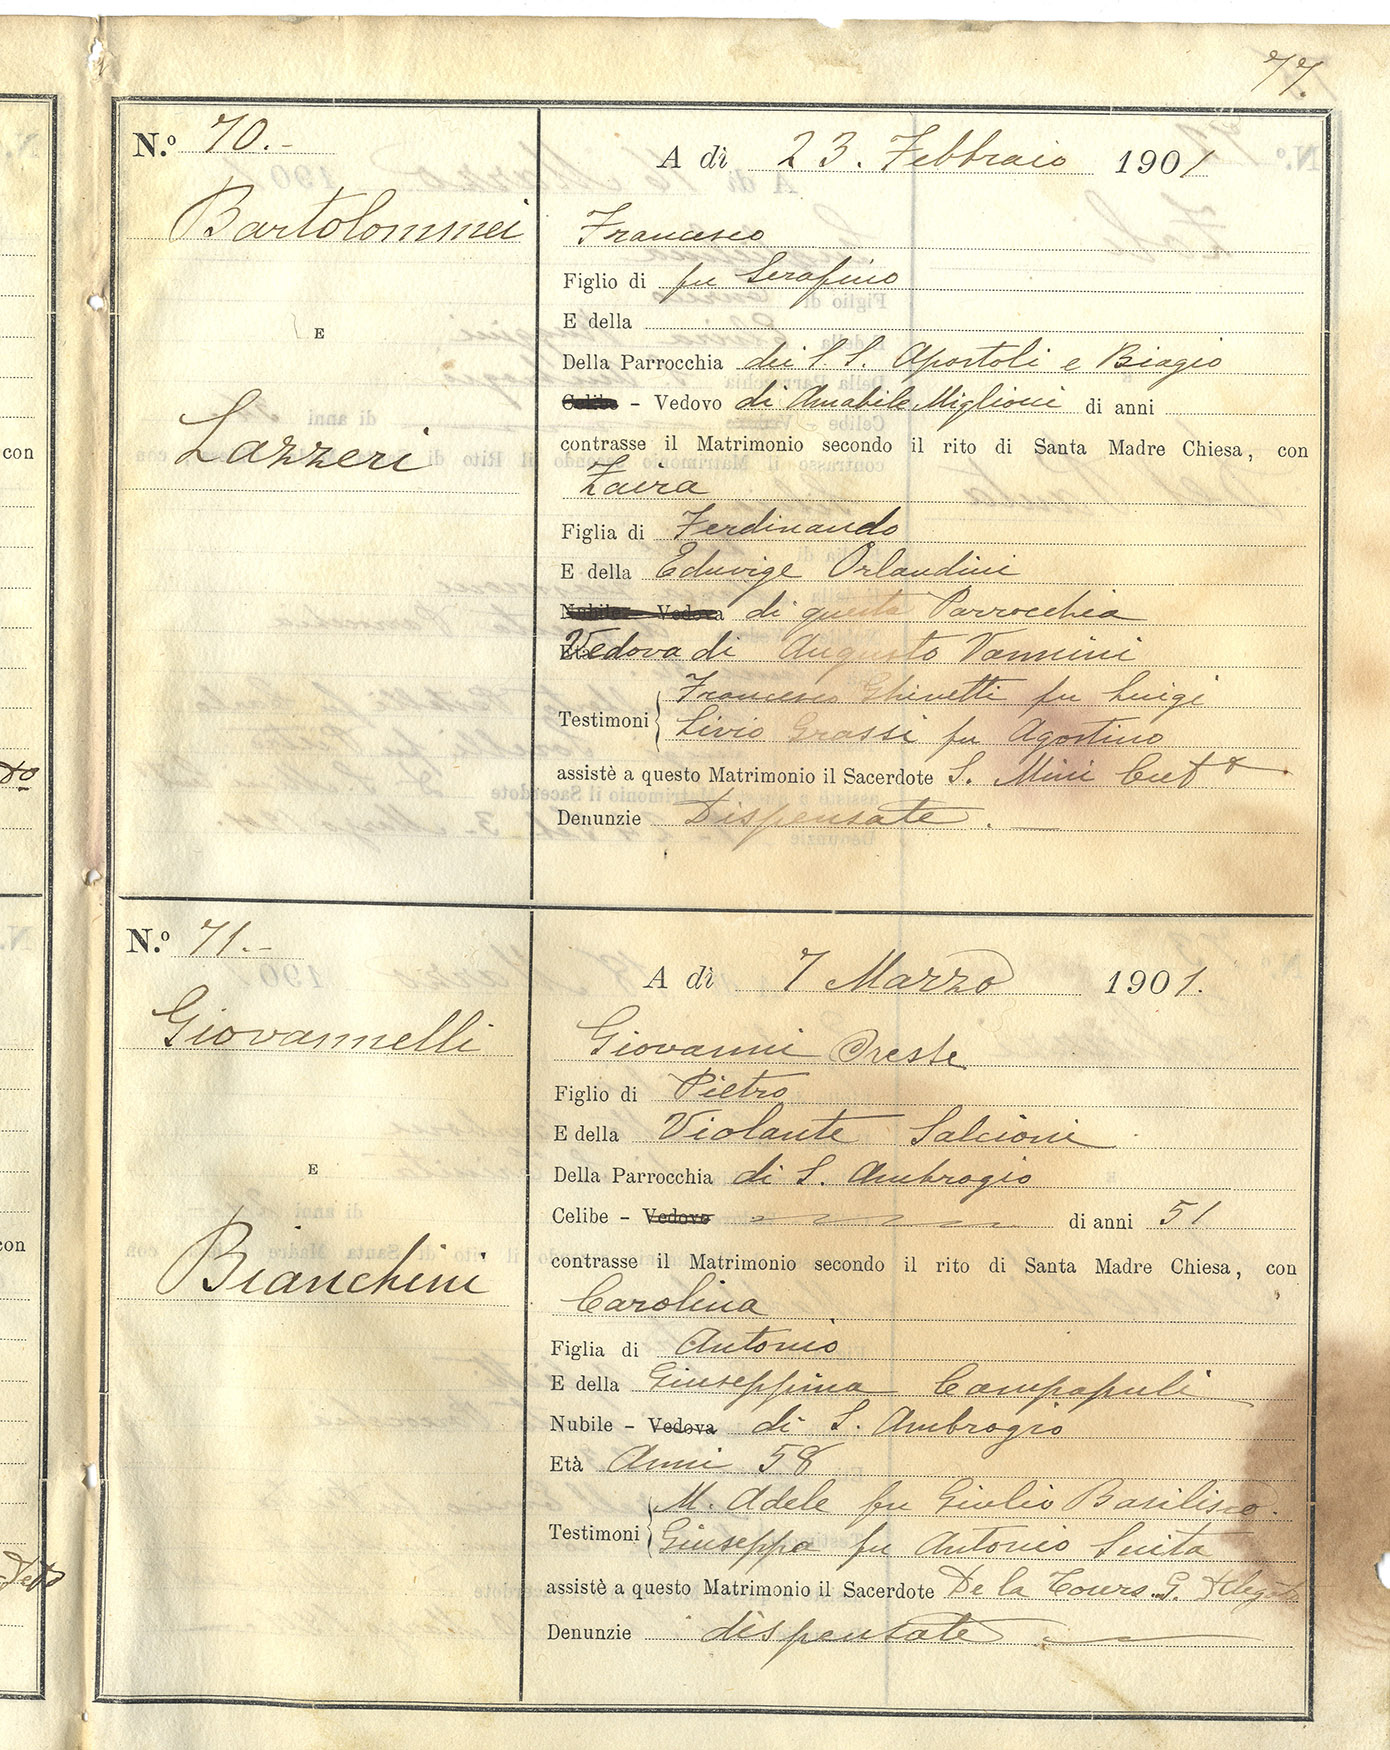 77.
con
N.º 70.-
Bartolommei
E
Lazzeri
A dì 23. Febbraio 1901
Francesco
Figlio di fu Serafino
E della
Della Parrocchia dei S S. Apostoli e Biagio
Celibe - Vedovo di Amabile Miglioni di anni
contrasse il Matrimonio secondo il rito di Santa Madre Chiesa, con
Zaira
Figlia di Ferdinando
E della Eduvige Orlandini
Nubile - Vedova di questa Parrocchia
Età Vedova di Augusto Vannini
Testimoni Francesco Ghivetti fu Luigi
Livio Grassi fu Agostino
assistè a questo Matrimonio il Sacerdote S. Mini
Denunzie Dispensate. —
con
N.º 71.-
Giovannelli
E
Bianchini
A dì 7 Marzo 1901.
Giovanni Oreste
Figlio di Pietro
E della Violante Salcioni
Della Parrocchia di S. Ambrogio
Celibe - Vedovo di anni 51
contrasse il Matrimonio secondo il rito di Santa Madre Chiesa, con
Carolina
Figlia di Antonio
E della Giuseppina Campopuli
Nubile - Vedova di S. Ambrogio
Età Anni 58
Testimoni M. Adele fu Giulio Basilisco.
Giuseppa fu Antonio Suita
assistè a questo Matrimonio il Sacerdote De la Tours. G.
Denunzie dispensate —